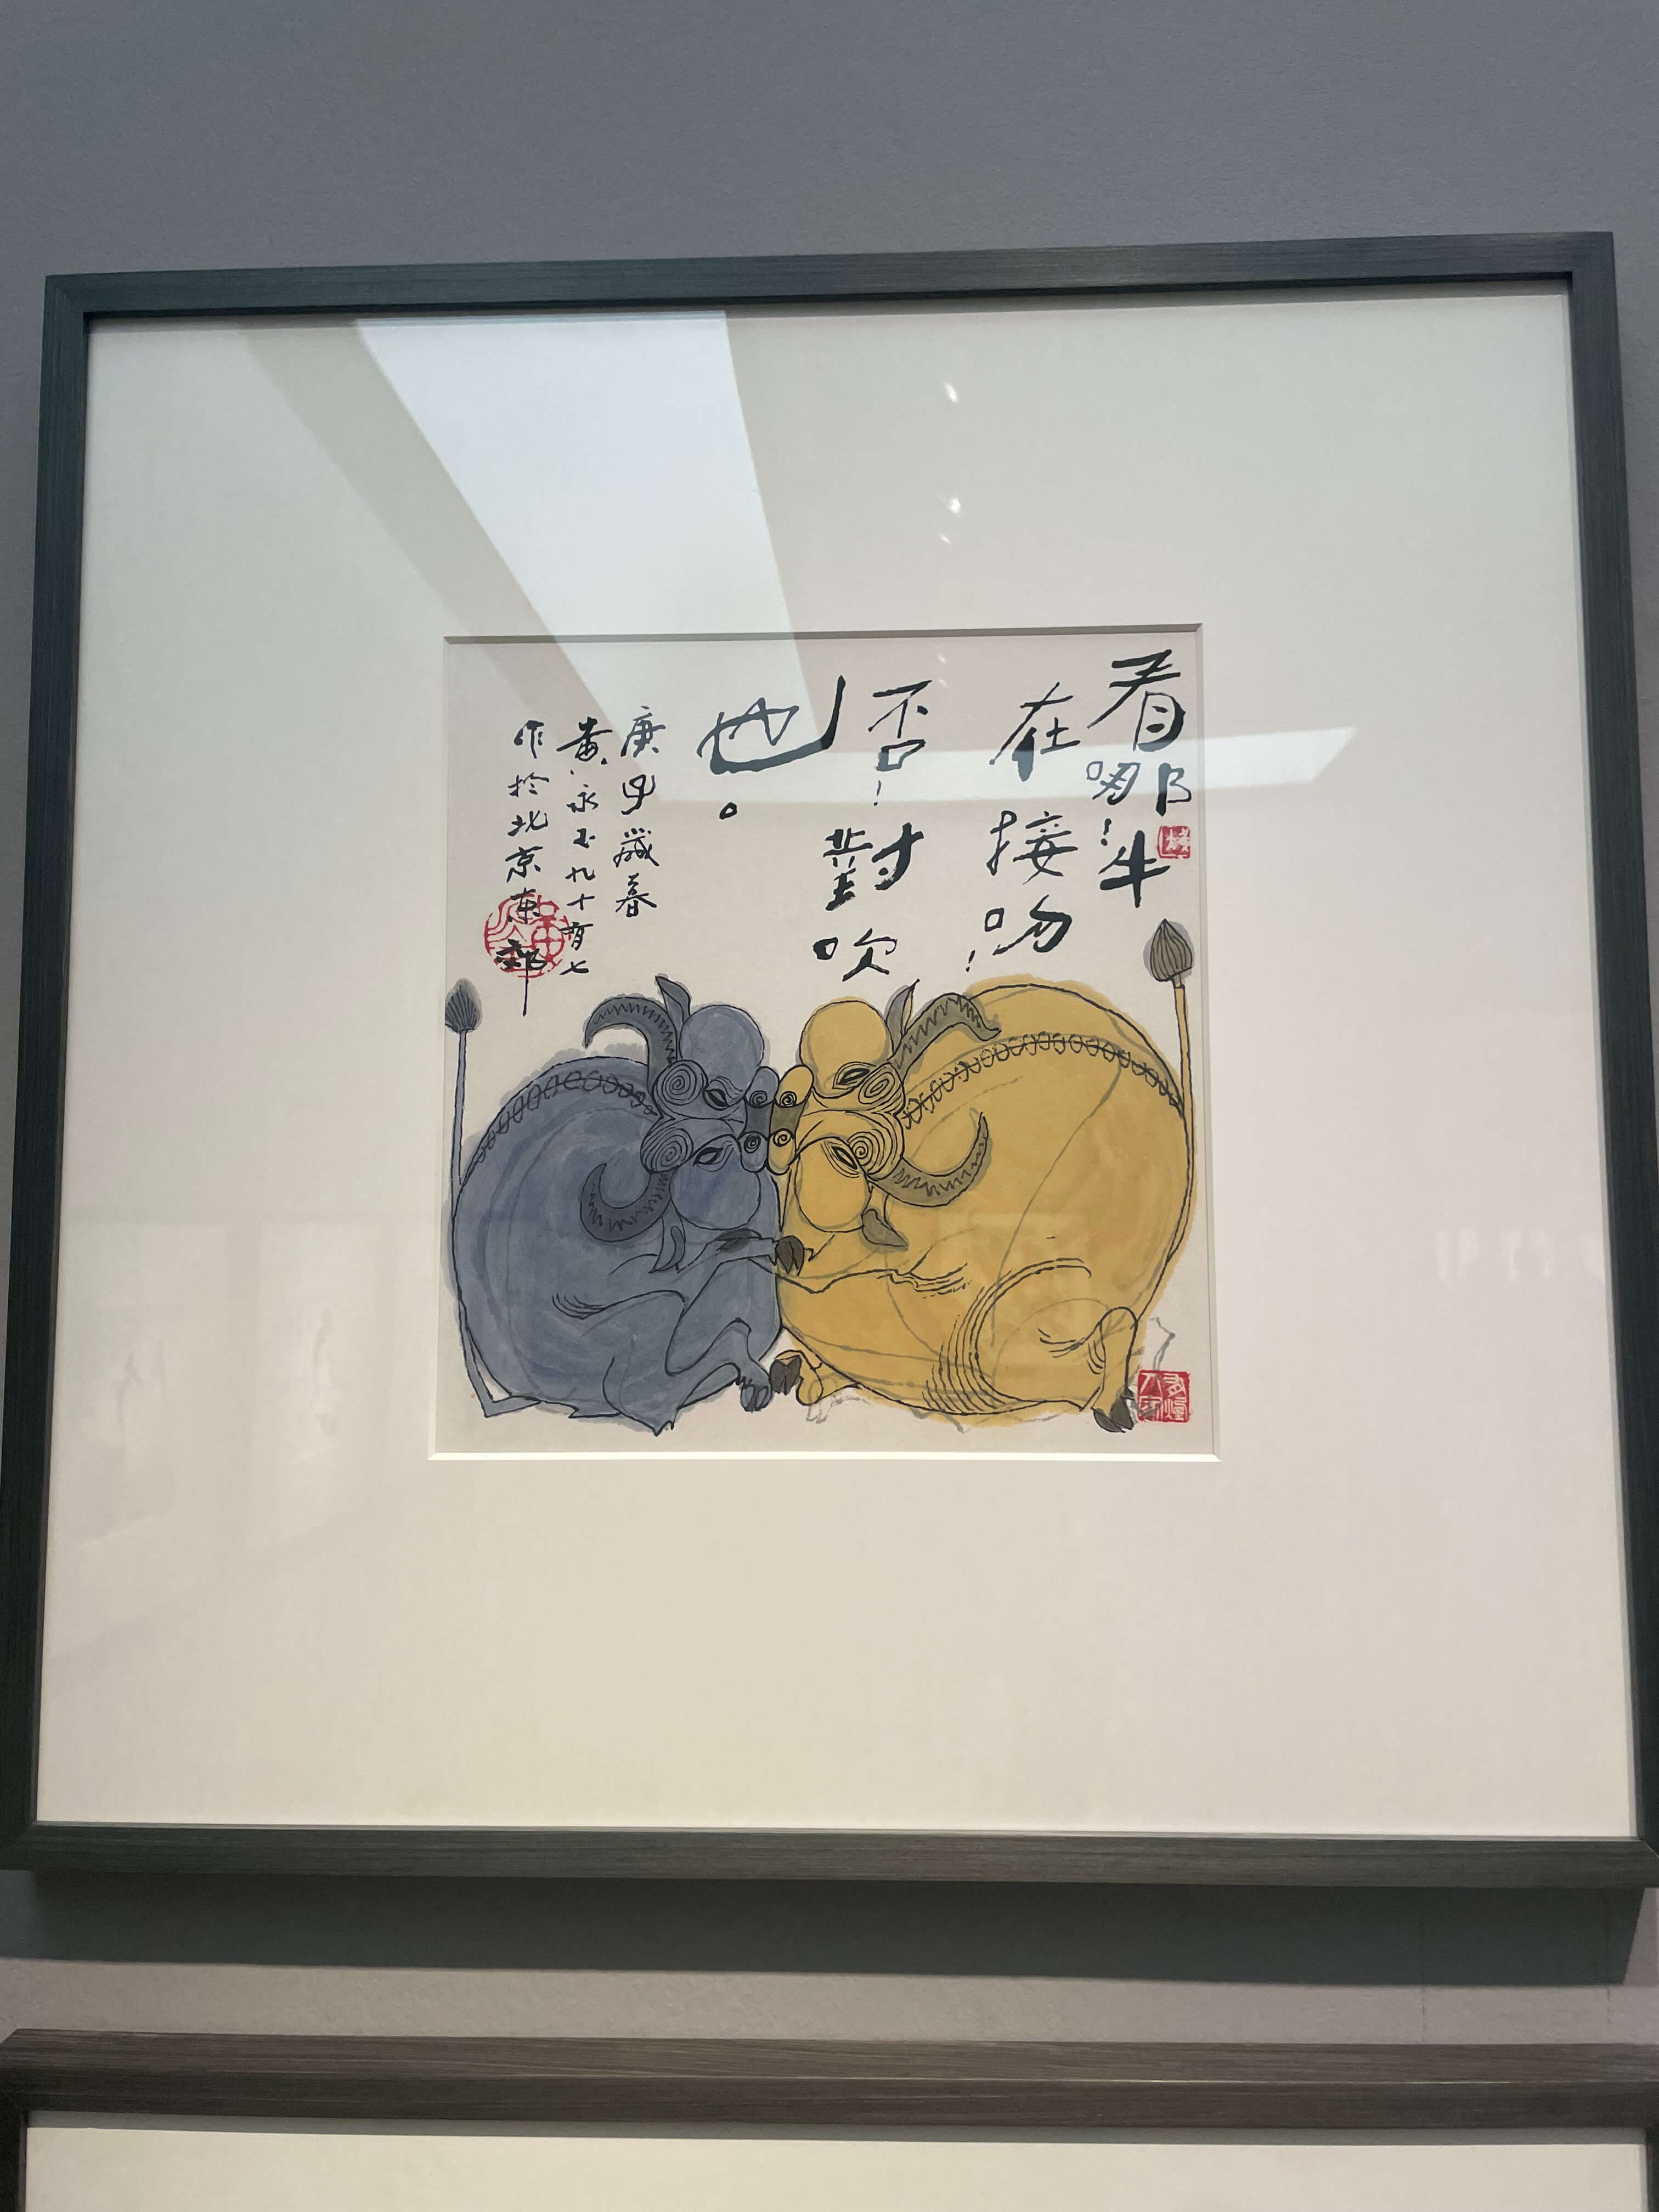 看哪！牛
在接吻！
否！對吹
也。
庚子歲暮
黃永玉九十有七
作於北京東郊